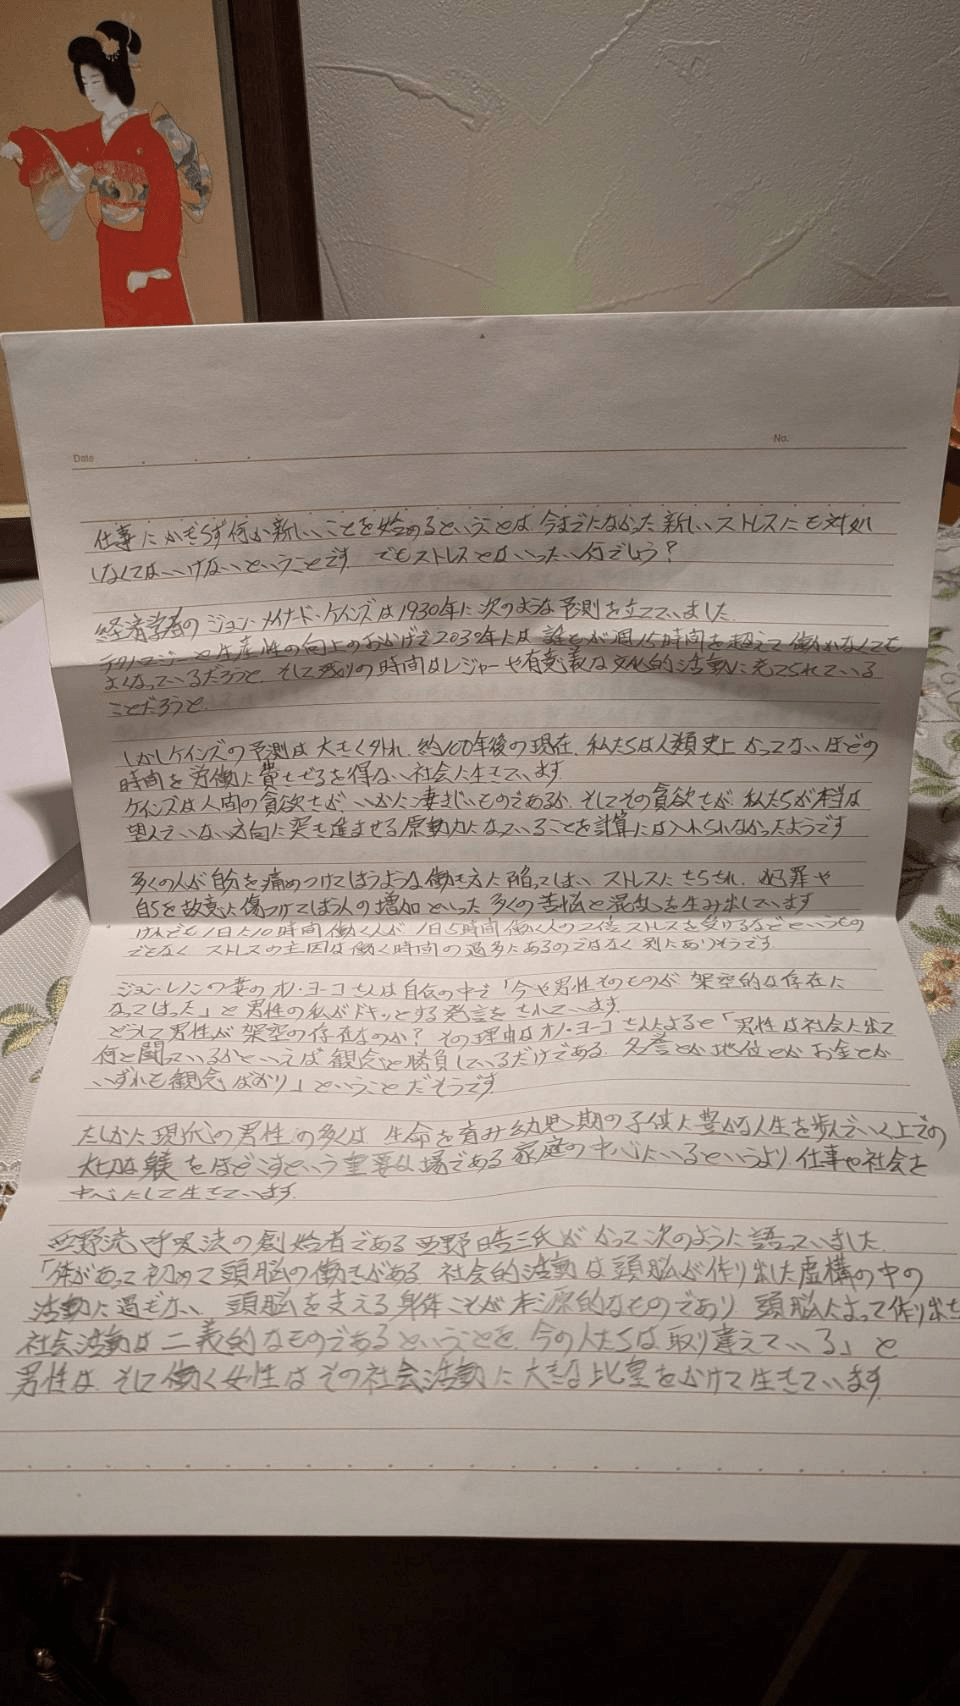 Date
No.
仕事にかぎらず何か新しいことを始めるということは今までになかった新しいストレスにも対処
しなくてはいけないということです でもストレスとはいったい何でしょう?
経済学者のジョン・メイナード・ケインズは1930年に次のような予測を立てていました
テクノロジーや生産性の向上のおかげで2030年には誰もが週15時間を超えて働かなくても
よくなっているだろうと、そして残りの時間はレジャーや有意義な文化的活動に充てられている
ことだろうと、
しかしケインズの予測は大きく外れ、約100年後の現在、私たちは人類史上かってないほどの
時間を労働に費やせざるを得ない社会に生きています
ケインズは人間の貪欲さが、いかに凄まじいものであるか、そしてその貪欲さが、私たちが本当は
望んでいない方向に突き進ませる原動力になっていることを計算には入れられなかったようです
多くの人が自分を痛めつけてしまうような働き方に陥ってしまいストレスにさらされ、犯罪や
自らを故意に傷つけてしまう人の増加といった多くの苦悩と混乱を生み出しています
けれども1日に10時間働く人が1日5時間働く人の2倍ストレスを受けるなどというもの
でもなく ストレスの主因は働く時間の過多にあるのではなく別にありそうです
ジョン・レノンの妻のオノ・ヨーコさんは自伝の中で「今や男性そのものが架空的な存在に
なってしまった」と男性の私がドキッとする発言をされています
どうして男性が架空の存在なのか? その理由はオノ・ヨーコさんによると「男性は社会に出て
何と闘っているかといえば観念と勝負しているだけである、名誉とか地位とかお金とか
いずれも観念ばかり」ということだそうです
たしかに現代の男性の多くは生命を育み幼児期の子供に豊かな人生を歩んでいく上での
大切な躾をほどこすという重要な場である家庭の中心にいるというより、仕事や社会を
中心にして生きています
西野流呼吸法の創始者である西野皓三氏がかって次のように語っていました
「体があって初めて頭脳の働きがある 社会的活動は頭脳が作り出した虚構の中の
活動に過ぎない 頭脳を支える身体こそが本源的なものであり 頭脳によって作り出す
社会活動は二義的なものであるということを、今の人たちは取り違えている」と
男性は、そして働く女性はその社会活動に大きな比重をかけて生きています